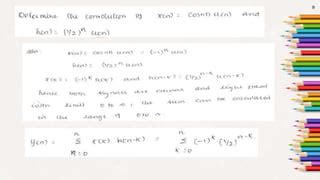 Determine the convolution of x(n) = cosnπ u(n) and
h(n) = (1/2)ⁿ u(n)
Soln: x(n) = cosnπ u(n) = (-1)ⁿ u(n)
h(n) = (1/2)ⁿ u(n)
x(k) = (-1)ᵏ u(k) and h(n-k) = (1/2)ⁿ⁻ᵏ u(n-k)
hence both signals are causal and right sided
with limit 0 to n, the sum can be calculated
in the range of 0 to n
y(n) = n Σ k=0 x(k) h(n-k) = n Σ k=0 (-1)ᵏ (1/2)ⁿ⁻ᵏ